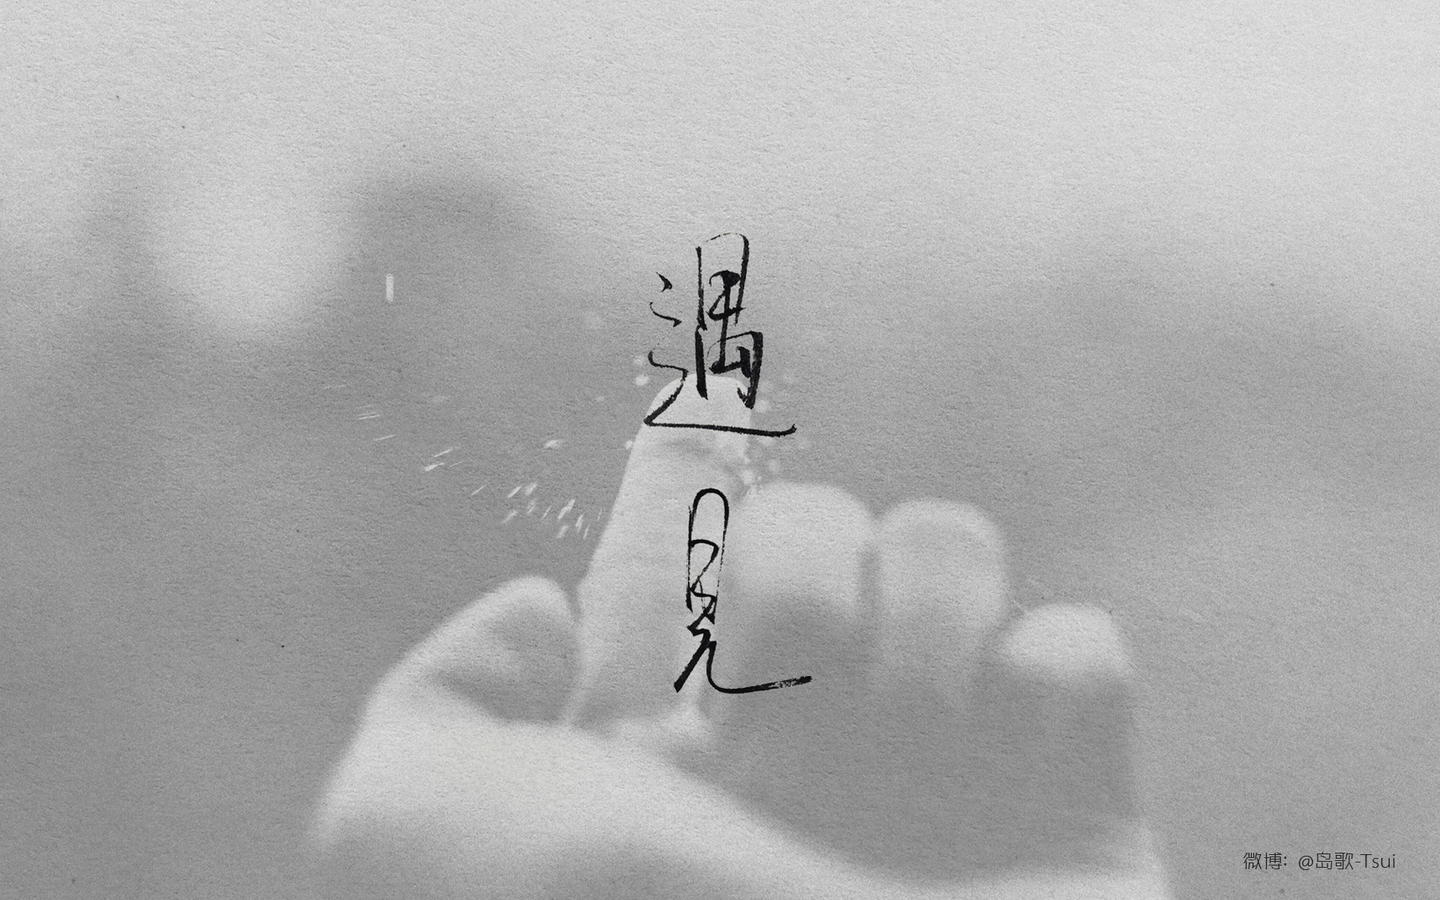 遇
見
微博: @岛歌-Tsui